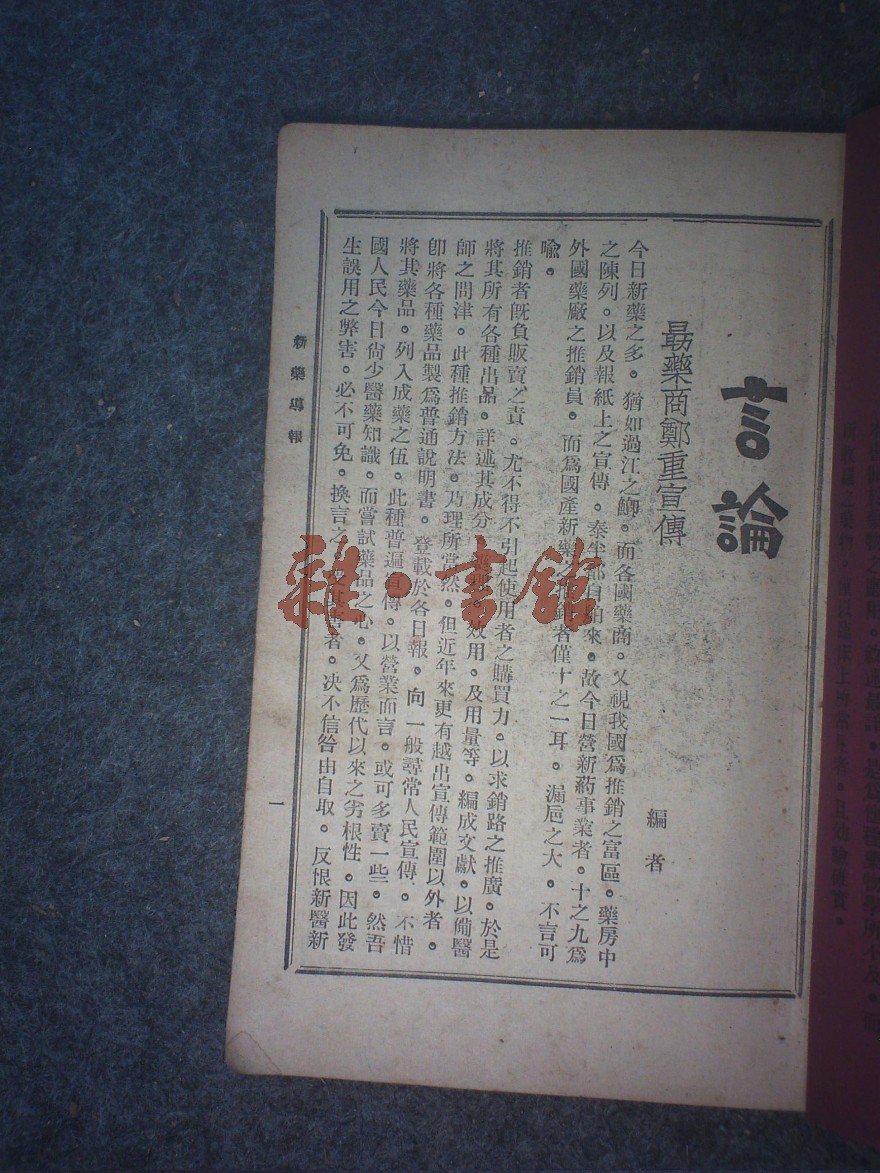 言論
最藥商鄭重宣傳
編者
今日新藥之多。猶如過江之鯽。而各國藥商。又視我國爲推銷之富區。藥房中
之陳列。以及報紙上之宣傳。泰半都自舶來。故今日營新葯事業者。十之九爲
外國藥廠之推銷員。而爲國產新藥之推銷者僅十之一耳。漏巵之大。不言可
喩。
推銷者旣負販賣之責。尤不得不引起使用者之購買力。以求銷路之推廣。於是
將其所有各種出品。詳述其成分 效用。及用量等。編成文獻。以備醫
師之問津。此種推銷方法。乃理所當然。但近年來更有越出宣傳範圍以外者。
卽將各種藥品製爲普通說明書。登載於各日報。向一般尋常人民宣傳。不惜
將其藥品。列入成藥之伍。此種普遍宣傳。以營業而言。或可多賣一些。然吾
國人民今日尙少醫藥知識。而嘗試藥品之心。又爲歷代以來之劣根性。因此發
生誤用之弊害。必不可免。換言之。受其害者。决不信咎由自取。反恨新醫新
新藥導報
一
雜·書館